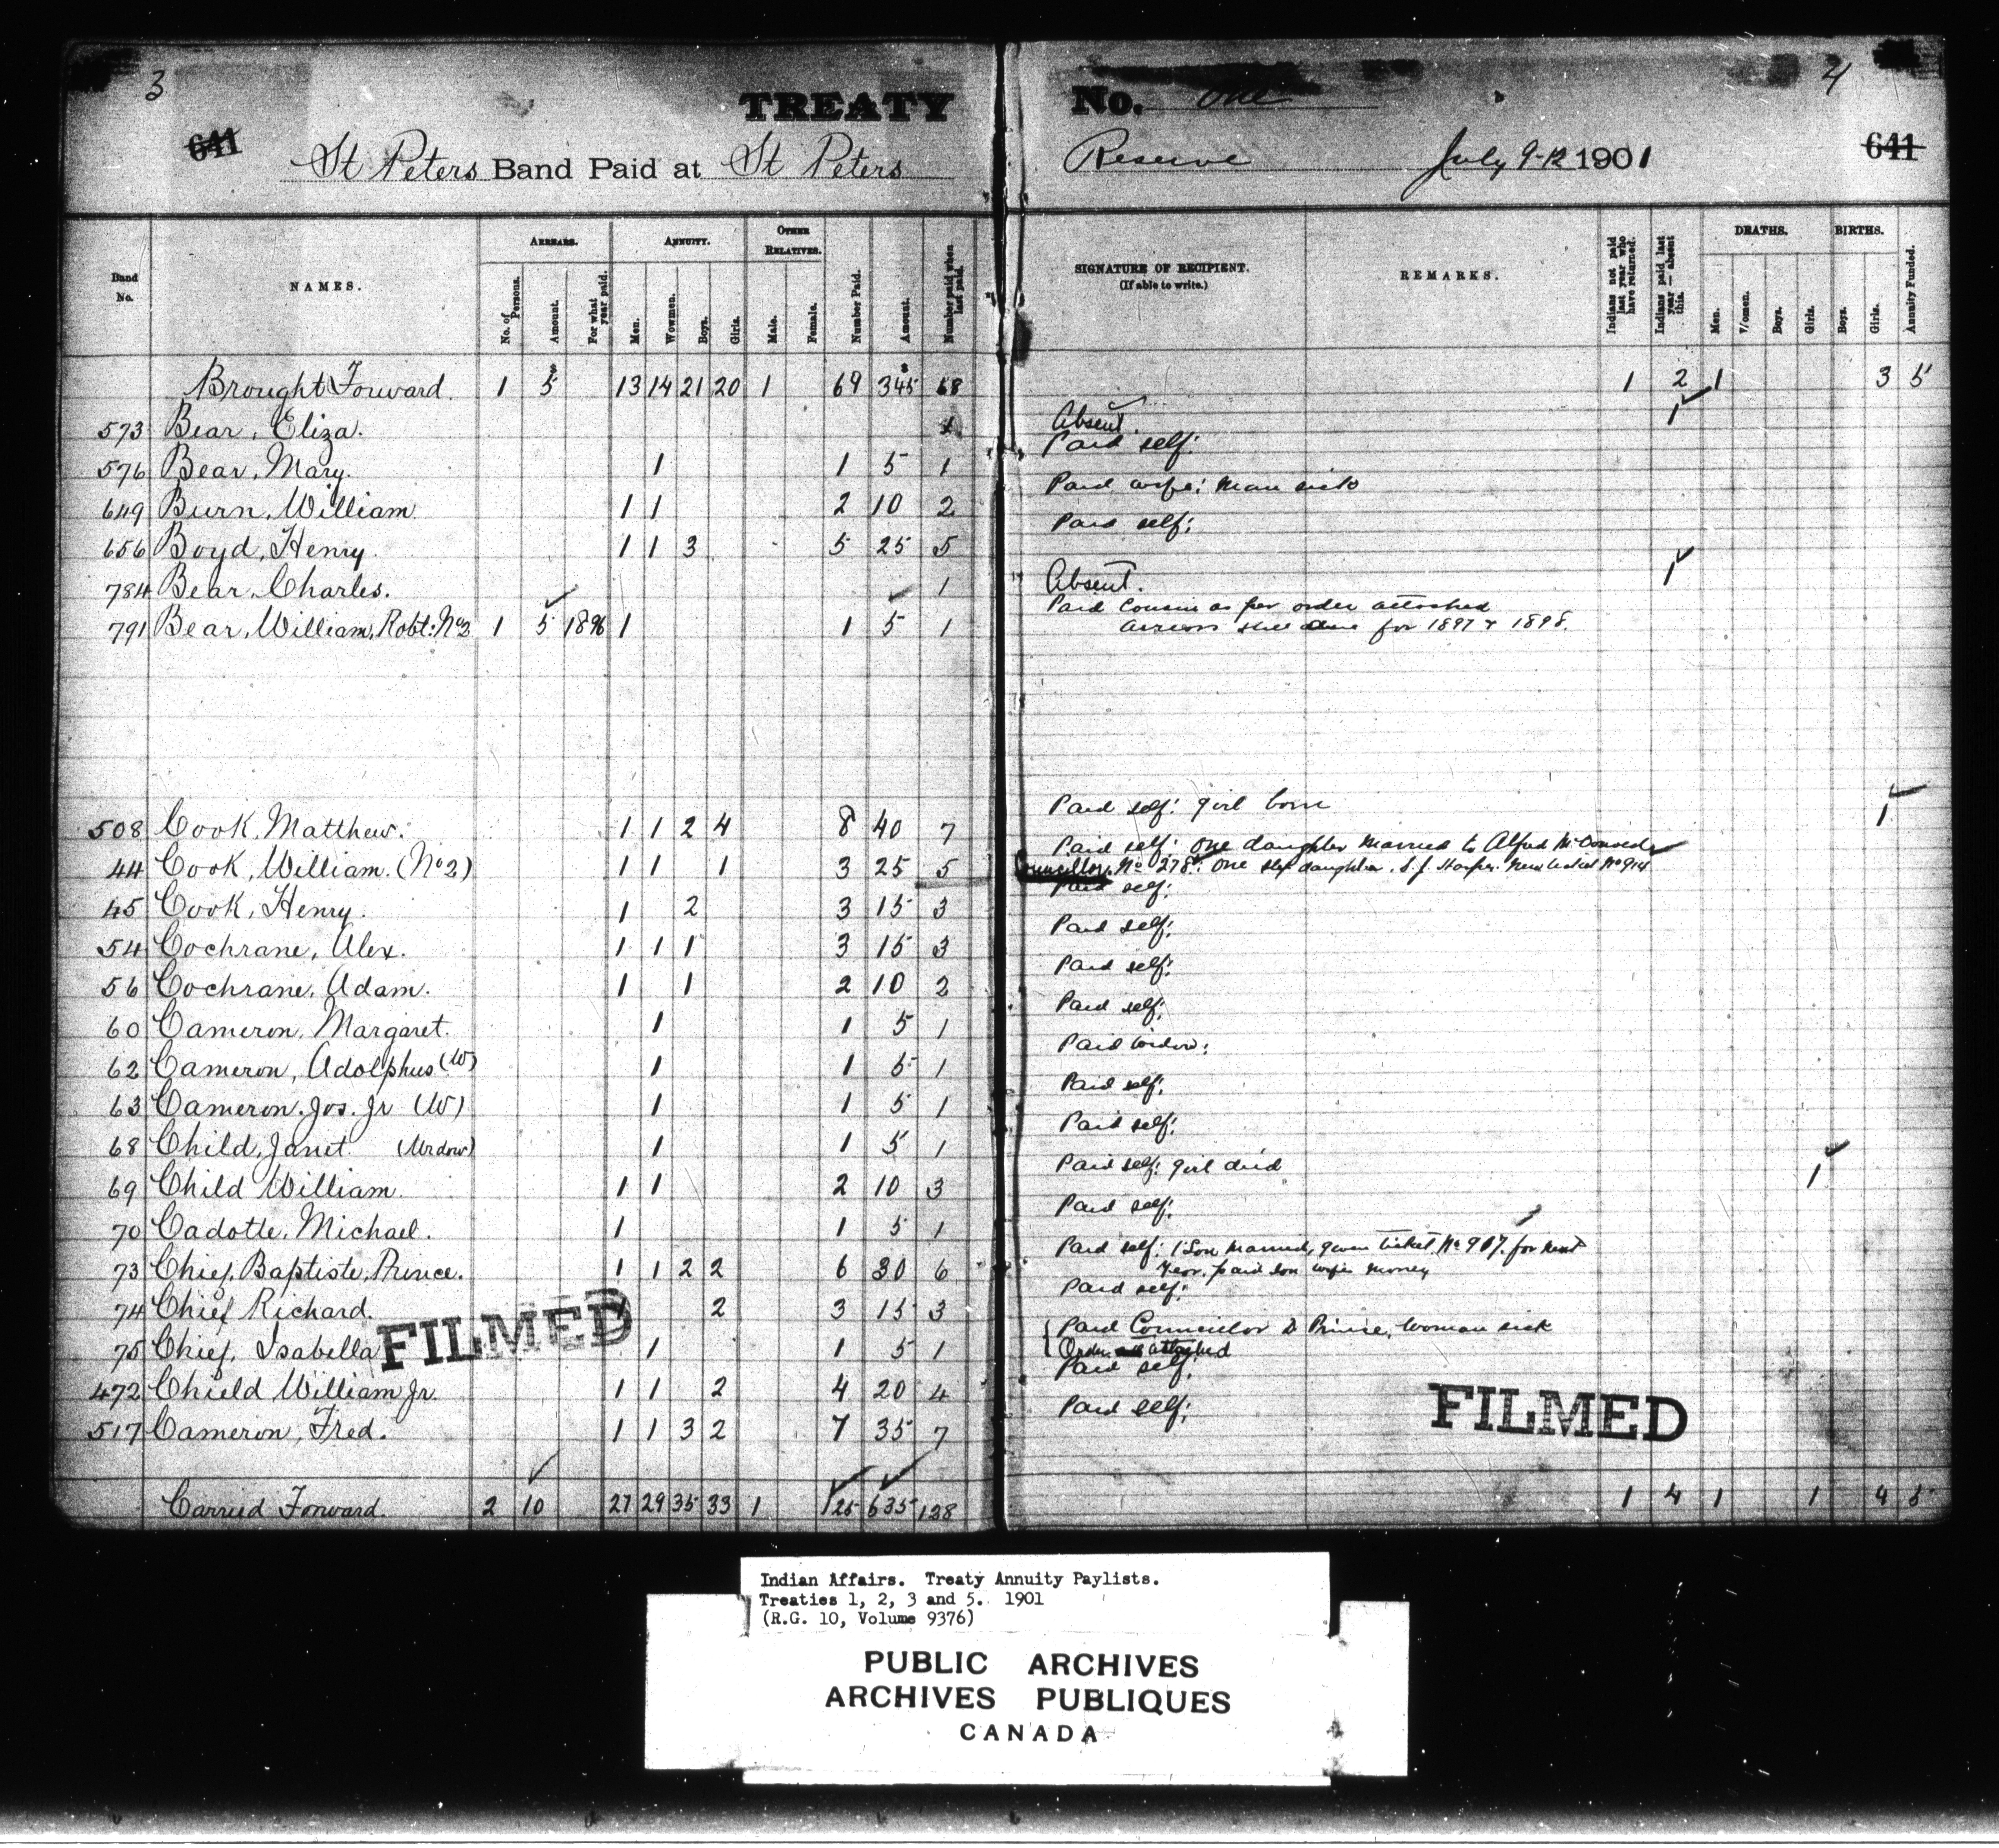 3
TREATY No. One
4
641
St Peters Band Paid at St Peters Reserve July 9-12 1901
641
Band No.
NAMES.
ARREARS.
No. of Persons.
Amount.
For what year paid.
ANNUITY.
Men.
Wowmen.
Boys.
Girls.
OTHER RELATIVES.
Male.
Female.
Number Paid.
Amount.
Number paid when last paid.
SIGNATURE OF RECIPIENT.
(If able to write.)
REMARKS.
Indians not paid last year who have returned.
Indians paid last year — absent this.
DEATHS.
Men.
Women.
Boys.
Girls.
BIRTHS.
Boys.
Girls.
Annuity Funded.
Brought Forward. 1 $5 13 14 21 20 1 69 $345 68 1 2 1 3 5
573 Bear, Eliza. 1 Absent. 1
576 Bear, Mary. 1 1 5 1 Paid self:
649 Burn, William 1 1 2 10 2 Paid wife: Man sick
656 Boyd, Henry. 1 1 3 5 25 5 Paid self:
784 Bear, Charles. 1 Absent. 1
791 Bear, William, Robt: No2 1 5 1896 1 1 5 1 Paid Cousin as per order attached
arrears still due for 1897 & 1898.
508 Cook, Matthew. 1 1 2 4 8 40 7 Paid self: girl born 1
44 Cook, William. (No 2) 1 1 1 3 25 5 Paid self: One daughter Married to Alfred McDonald
Councillor. No 278. One step daughter. S. J. Harper. New ticket No 914
45 Cook, Henry. 1 2 3 15 3 Paid self:
54 Cochrane, Alex. 1 1 1 3 15 3 Paid self:
56 Cochrane, Adam. 1 1 2 10 2 Paid self:
60 Cameron, Margaret. 1 1 5 1 Paid self:
62 Cameron, Adolphus (W) 1 1 5 1 Paid widow:
63 Cameron, Jos. Jr (W) 1 1 5 1 Paid self:
68 Child, Janet. (Widow) 1 1 5 1 Paid self:
69 Child William. 1 1 2 10 3 Paid self: girl died 1
70 Cadotte, Michael. 1 1 5 1 Paid self:
73 Chief, Baptiste, Prince. 1 1 2 2 6 30 6 Paid self: 1 Son Married, given ticket No 917. for next
Year, paid son wife's money
74 Chief Richard. 1 2 3 15 3 Paid self:
75 Chief, Isabella 1 1 5 1 Paid Councillor D Prince, Woman sick
Order attached
472 Chield William Jr. 1 1 2 4 20 4 Paid self:
517 Cameron, Fred. 1 1 3 2 7 35 7 Paid self:
FILMED
FILMED
Carried Forward. 2 10 27 29 35 33 1 125 635 128 1 4 1 1 4 5
Indian Affairs. Treaty Annuity Paylists.
Treaties 1, 2, 3 and 5. 1901
(R.G. 10, Volume 9376)
PUBLIC ARCHIVES
ARCHIVES PUBLIQUES
CANADA